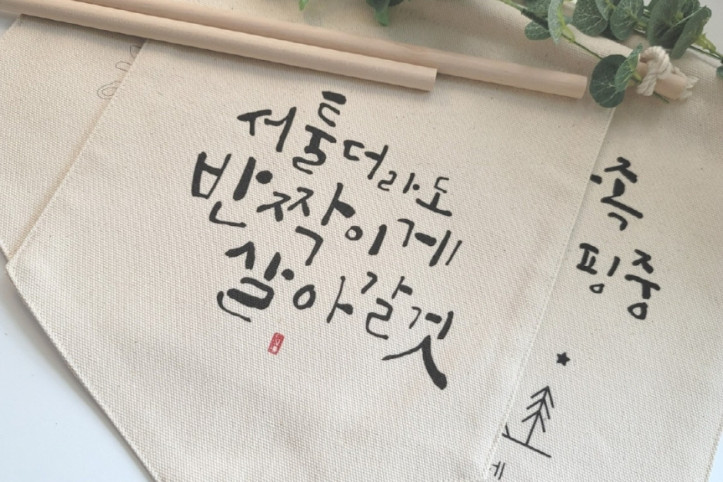 서툴더라도
반짝이게
살아갈것
족
핑중
게